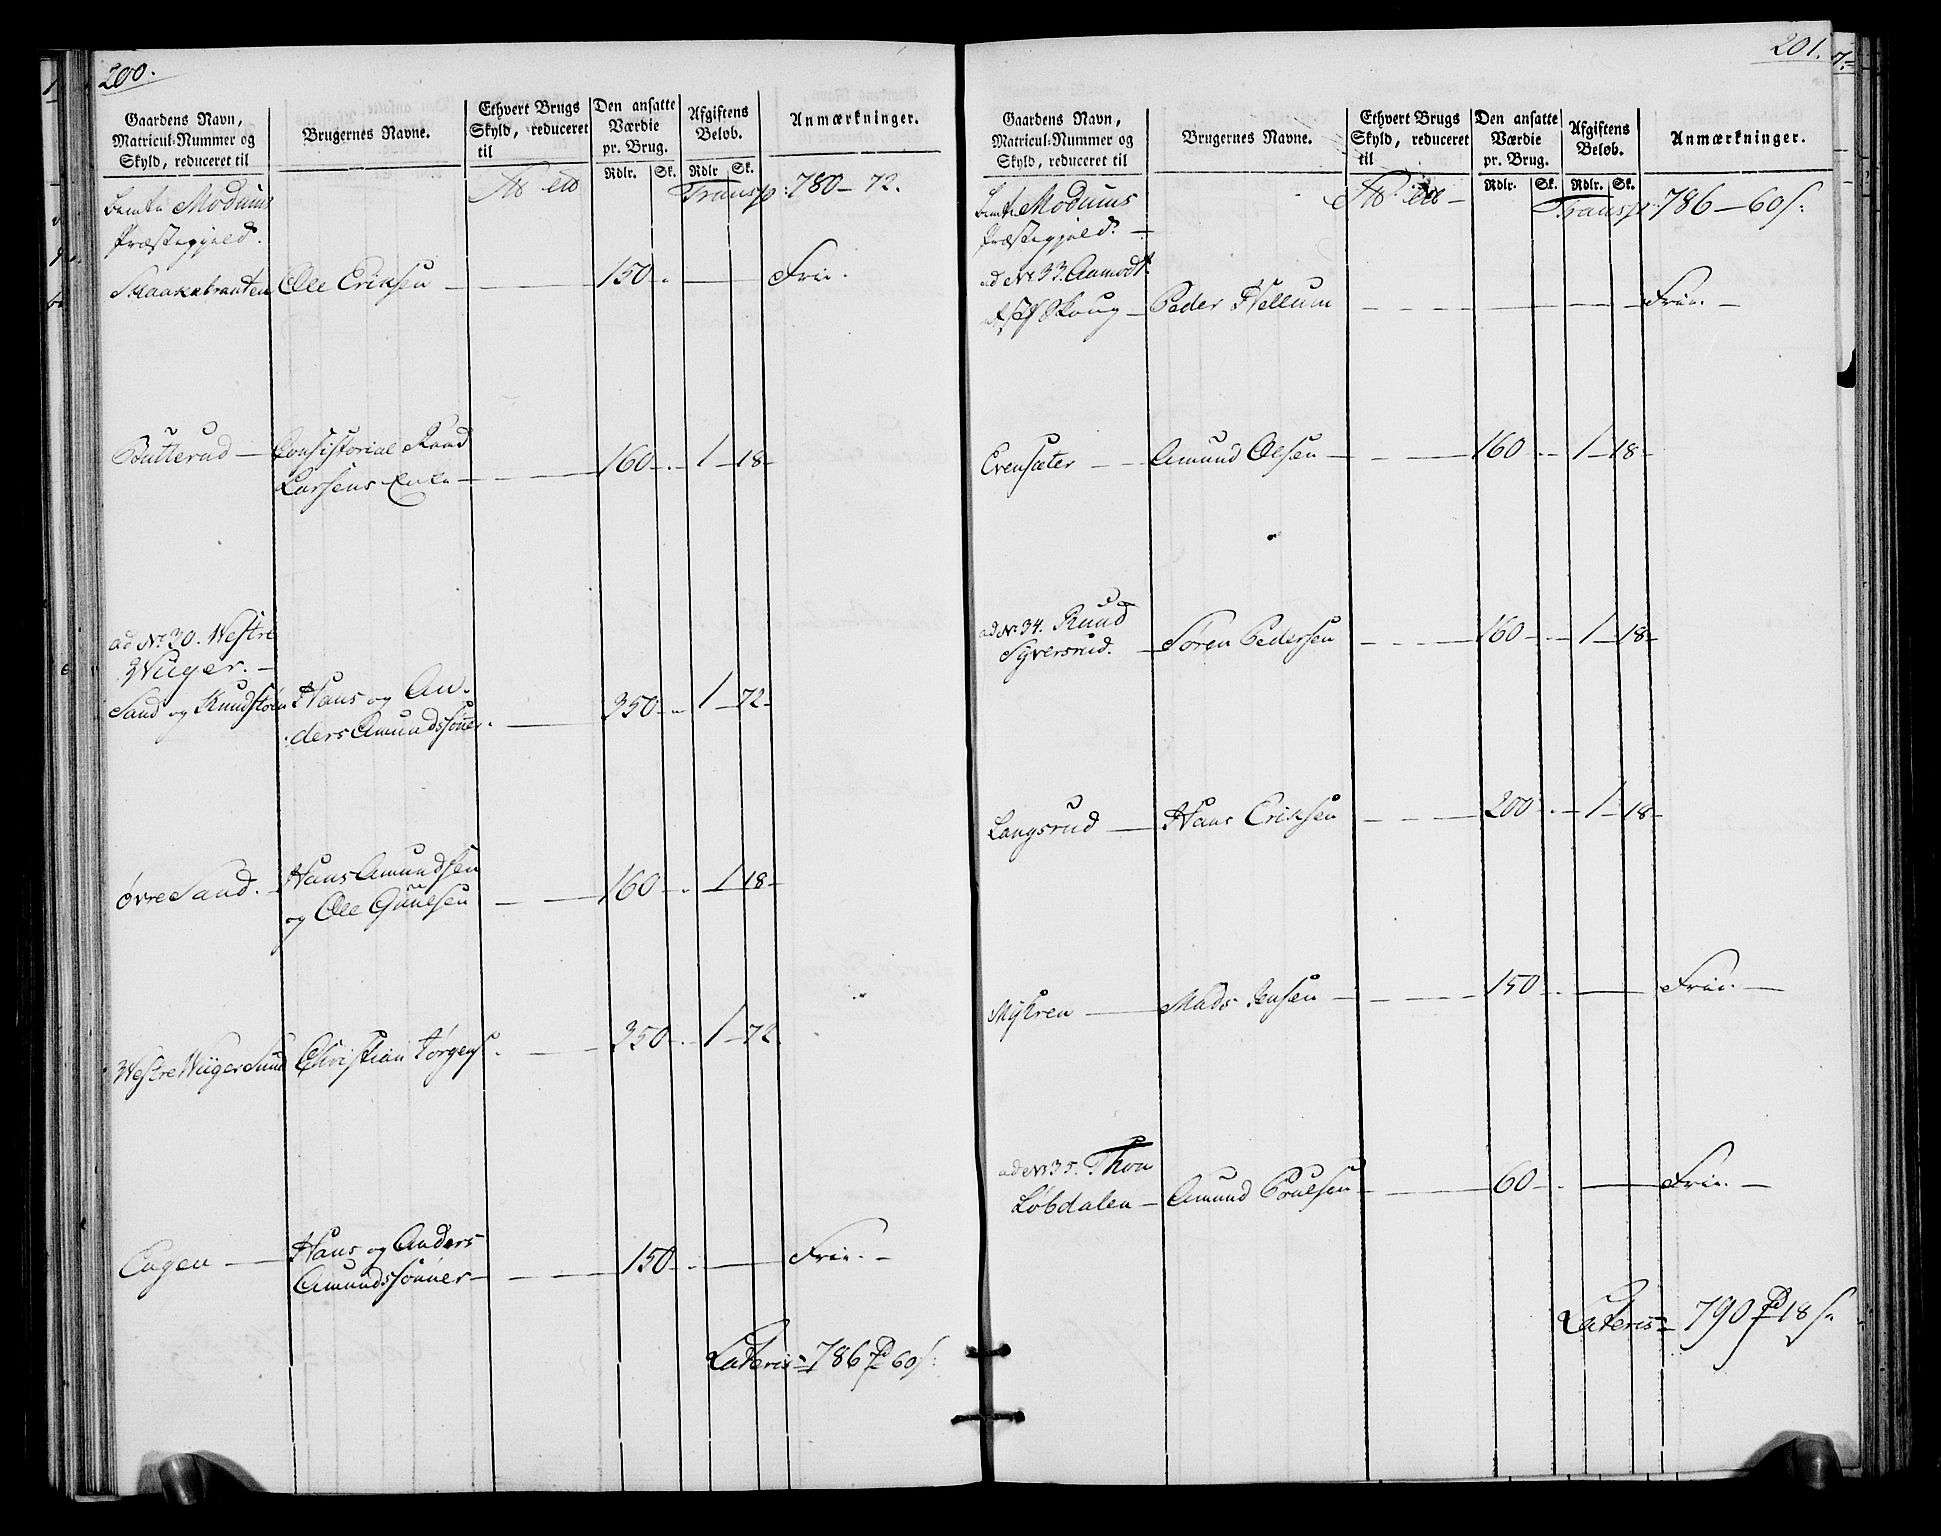 200.
Gaardens Navn, Matricul-Nummer og Skyld, reduceret til
Brugernes Navne.
Ethvert Brugs Skyld, reduceret til
Den ansatte Værdie pr. Brug.
Afgiftens Beløb.
Anmærkninger.
Rdlr. Sk. Rdlr Sk.
Transp: 780 - 72.
Modums
Præstegjeld.
Ole Eriksen - 150 - Frie.
Butterud - Consistorial Raad
Larsens Enke - 160 - 1 - 18 -
ad No 30. Westre
Wiiger. -
Sand og Knudstøen Hans og An-
ders Amundssønner. 350 - 1 - 72 -
øvre Sand. - Hans Amundsen
og Ole Guulsen - 160 - 1 - 18 -
Westre Wiiger Sund Christian Jørgens. - 350 - 1 - 72.
Engen - Hans og Anders
Amundssønner - 150 - Frie. -
Lateris = 786 60 s:
201.
Gaardens Navn, Matricul-Nummer og Skyld, reduceret til
Brugernes Navne.
Ethvert Brugs Skyld, reduceret til
Den ansatte Værdie pr. Brug.
Afgiftens Beløb.
Anmærkninger.
Rdlr. Sk. Rdlr. Sk.
Transp: 786 - 60 s:
Modums
Præstegjeld. -
ad No 33.
Skoug - Peder Hellum - Frie. -
Evensæter - Amund Olsen - 160 - 1 - 18 -
ad No 34. Ruud
Syversrud. - Søren Pedersen - 160 - 1 - 18 -
Langsrud - Hans Eriksen - 200 - 1 - 18 -
Myhren - Mads Jensen - 150 - Frie. -
ad No 35. Thon
Løbdalen - Amund Povelsen - 60 - Frie. -
Lateris = 790 18 s.